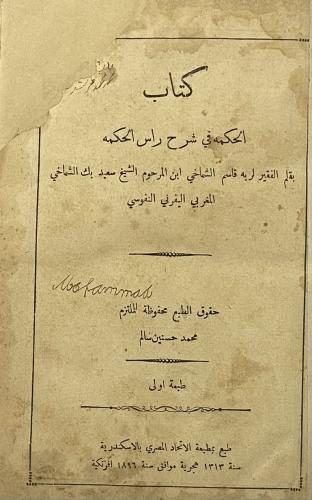 كتاب
الحكمه في شرح راس الحكمه
بقلم الفقير لربه قاسم الشماخي ابن المرحوم الشيخ سعيد بك الشماخي
المغربي اليفرني النفوسي
Mohammad
حقوق الطبع محفوظة للملتزم
محمد حسنين سالم
طبعة اولى
طبع بمطبعة الاتحاد المصري بالاسكندرية
سنة ١٣١٣ هجرية موافق سنة ١٨٩٦ افرنكية